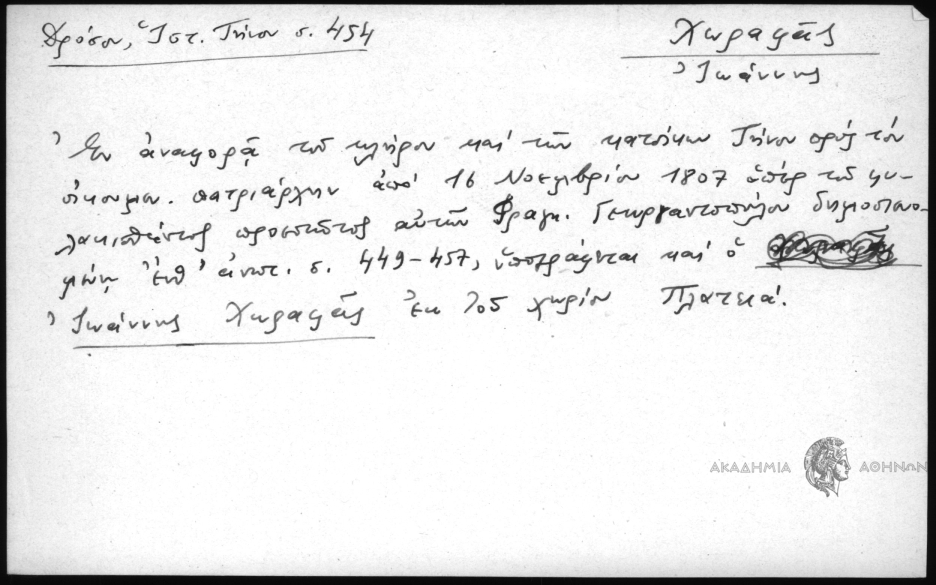 Δρόσου, Ἱστ. Τήνου σ. 454
Χωραφᾶς
Ἰωάννης
Ἐν ἀναφορᾷ τοῦ κλήρου καὶ τῶν κατοίκων Τήνου πρὸς τὸν
οἰκουμεν. πατριάρχην ἀπὸ 16 Νοεμβρίου 1807 ὑπὲρ τοῦ φυ-
λακισθέντος προεστῶτος αὐτῶν Φραγκ. Γεωργαντοπούλου δημοσιευο-
μένῃ ἔνθ' ἀνωτ. σ. 449-457, ὑπογράφεται καὶ ὁ
Ἰωάννης Χωραφᾶς ἐκ τοῦ χωρίου Πλατειά.
ΑΚΑΔΗΜΙΑ ΑΘΗΝΩΝ